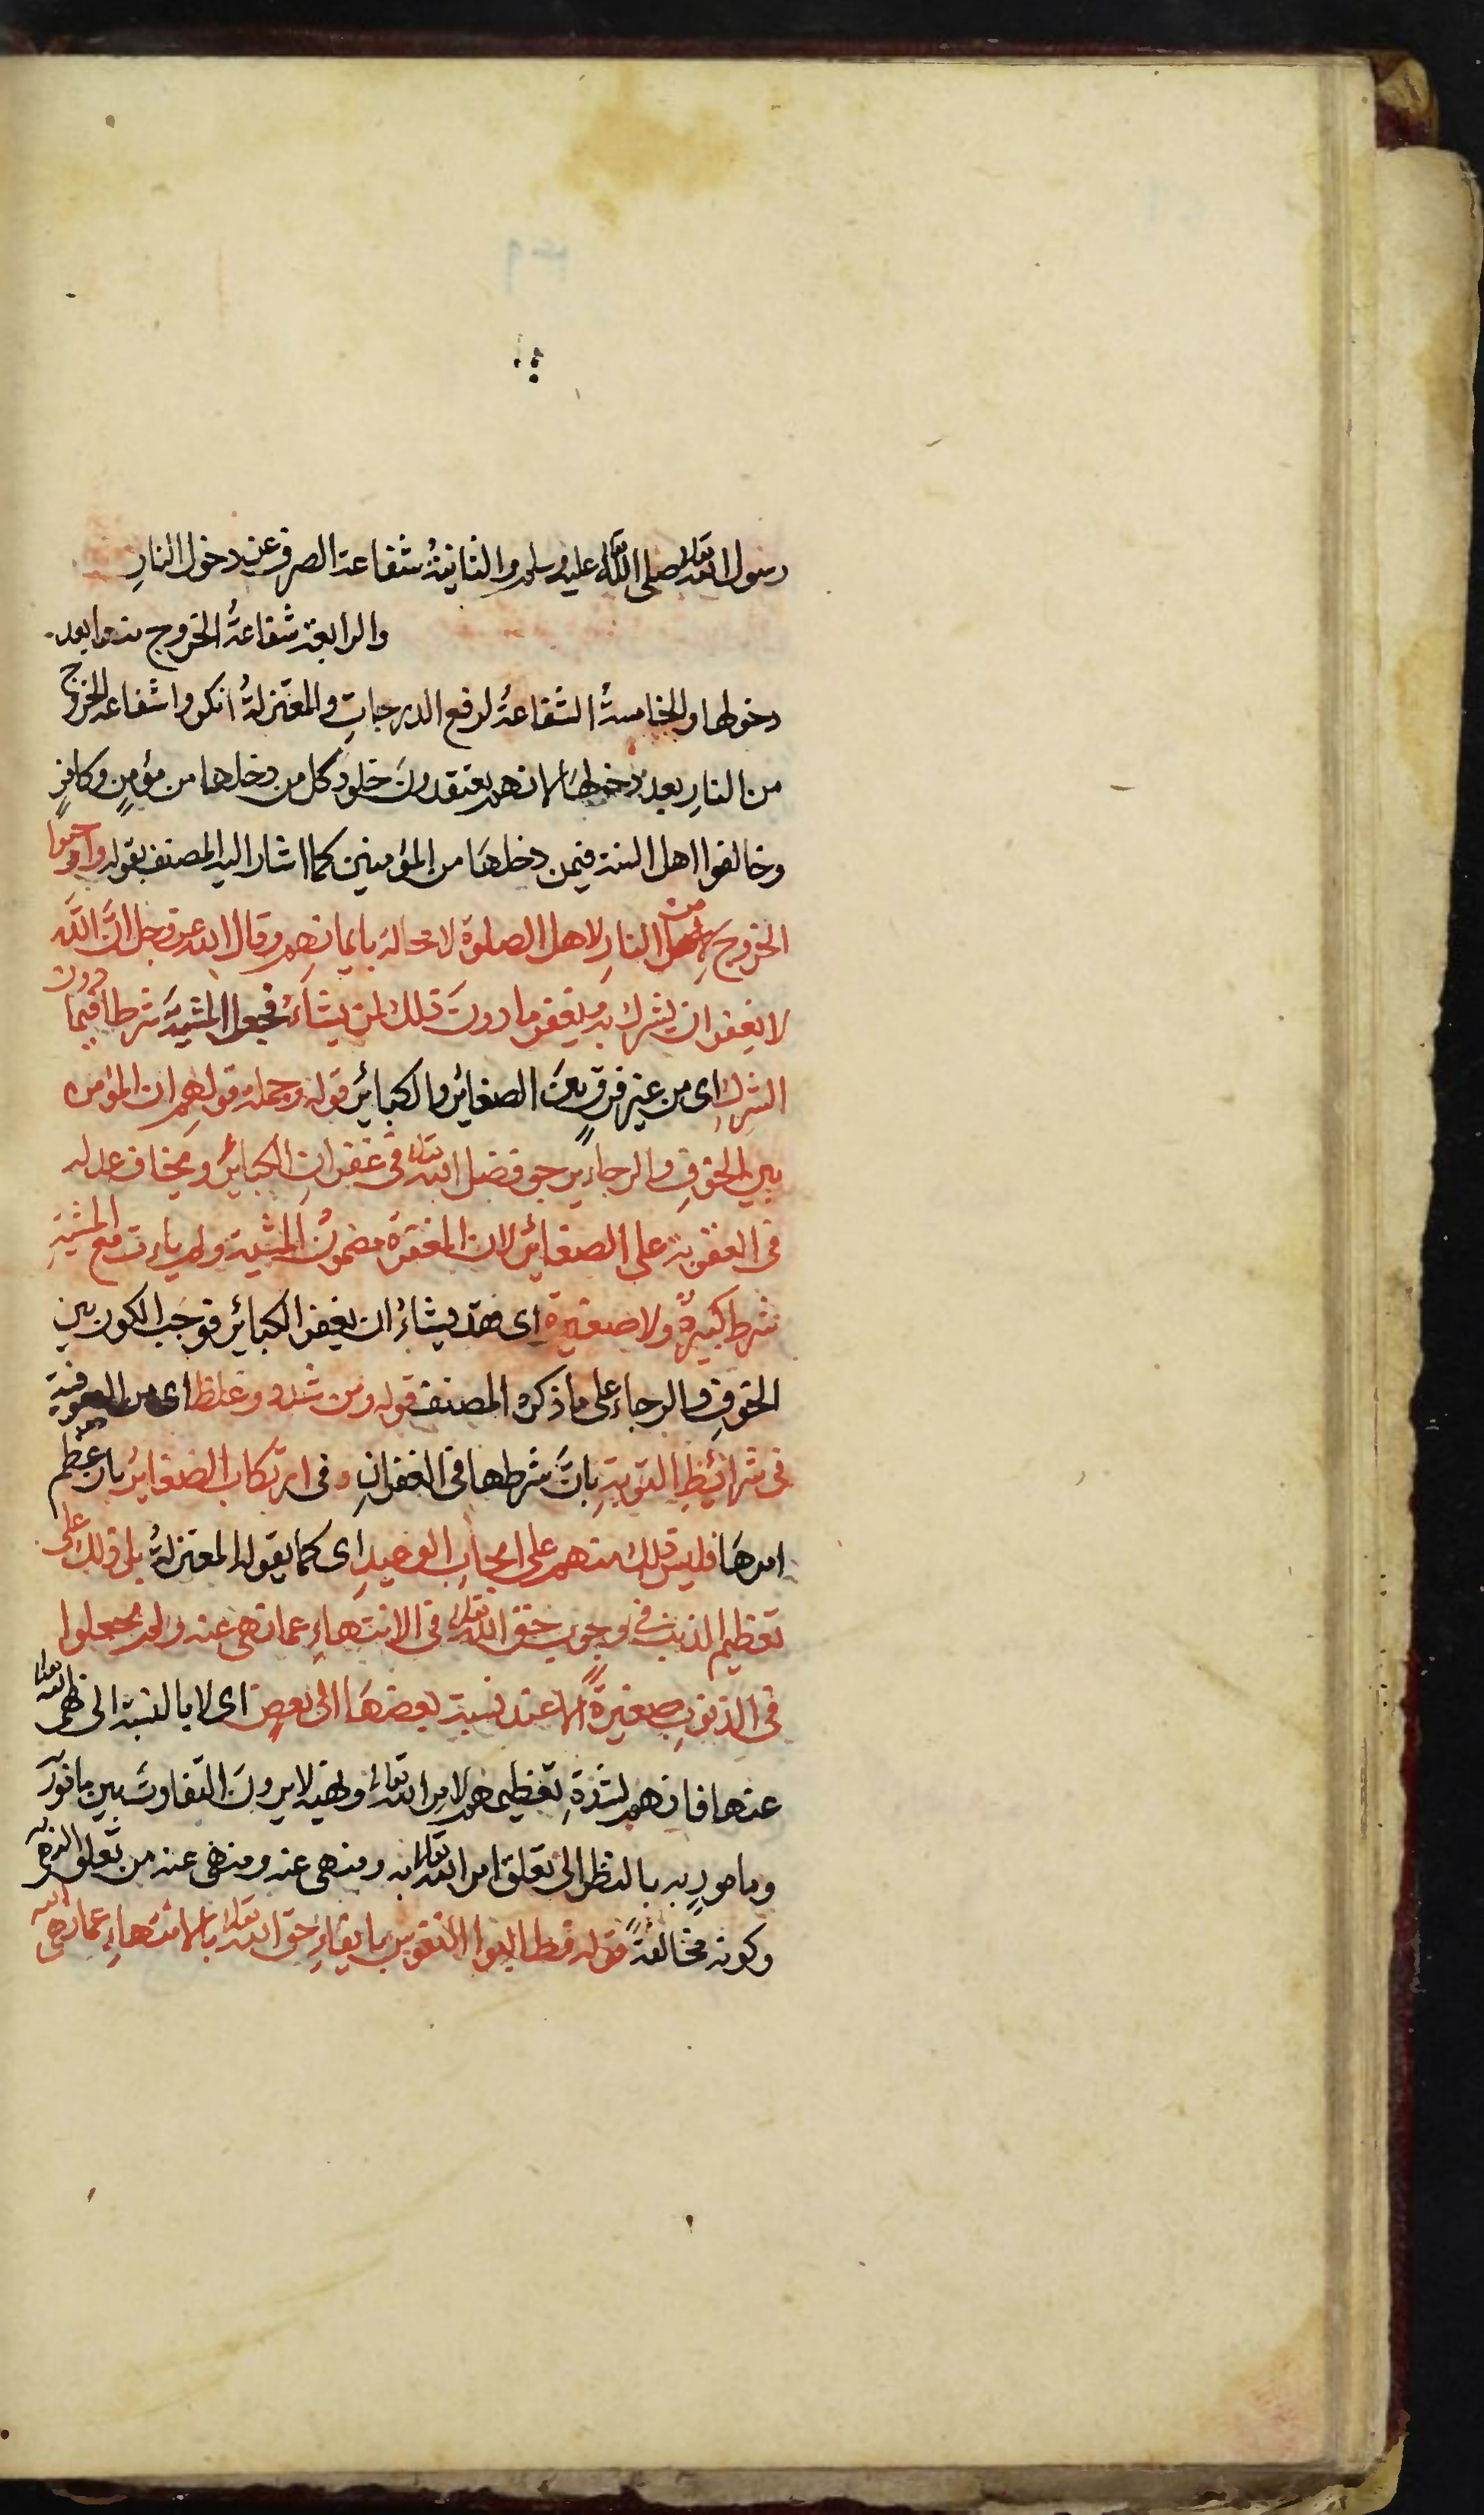 رسول الله تعالى صلى الله عليه وسلم والثانية شفاعة الصرف عند دخول النار
والرابعة شفاعة الخروج منها بعد
دخولها والخامسة الشفاعة لرفع الدرجات والمعتزلة انكروا شفاعة الخروج
من النار بعد دخولها لانهم يعتقدون خلود كل من دخلها من مؤمن وكافر
وخالفوا اهل السنة فيمن دخلها من المؤمنين كما اشار اليه المصنف بقوله واوجبوا
الخروج من النار لاهل الصلوة لا محالة بايمانهم وقال الله عز وجل ان الله
لا يغفر ان يشرك به ويغفر ما دون ذلك لمن يشاء فجعل المشية شرطا فيما دون
الشرك اى من غير فرق بين الصغائر والكبائر قوله وجملة قولهم ان المؤمن
بين الخوف والرجاء يرجو فضل الله تعالى فى غفران الكبائر ويخاف عدله
فى العقوبة على الصغائر لان المغفرة مضمون المشية ولم يات مع المشية
شرط كبيرة ولا صغيرة اى فقد يشاء ان يغفر الكبائر فوجب الكون بين
الخوف والرجاء على ما ذكره المصنف قوله ومن شدد وغلظ اى من الصوفية
فى شرائط التوبة بان شرطها فى الغفران وفى ارتكاب الصغائر بان عظم
امرها فليس ذلك منهم على ايجاب الوعيد اى كما يقوله المعتزلة بل ذلك على
تعظيم الذنب فى وجوب حق الله تعالى فى الانتهاء عما نهى عنه ولم يجعلوا
فى الذنوب صغيرة الا عند نسبة بعضها الى بعض اى لا بالنسبة الى نهى الله تعالى
عنها فانهم لشدة تعظيمهم لامر الله تعالى ونهيه لا يرون التفاوت بين مامور
ومامور به بالنظر الى تعلق امر الله تعالى به ومنهى عنه ومنهى عنه من تعلق النهى به
وكونه مخالفة قوله فطالبوا النفوس بايفاء حق الله تعالى بالانتهاء عما نهى الله